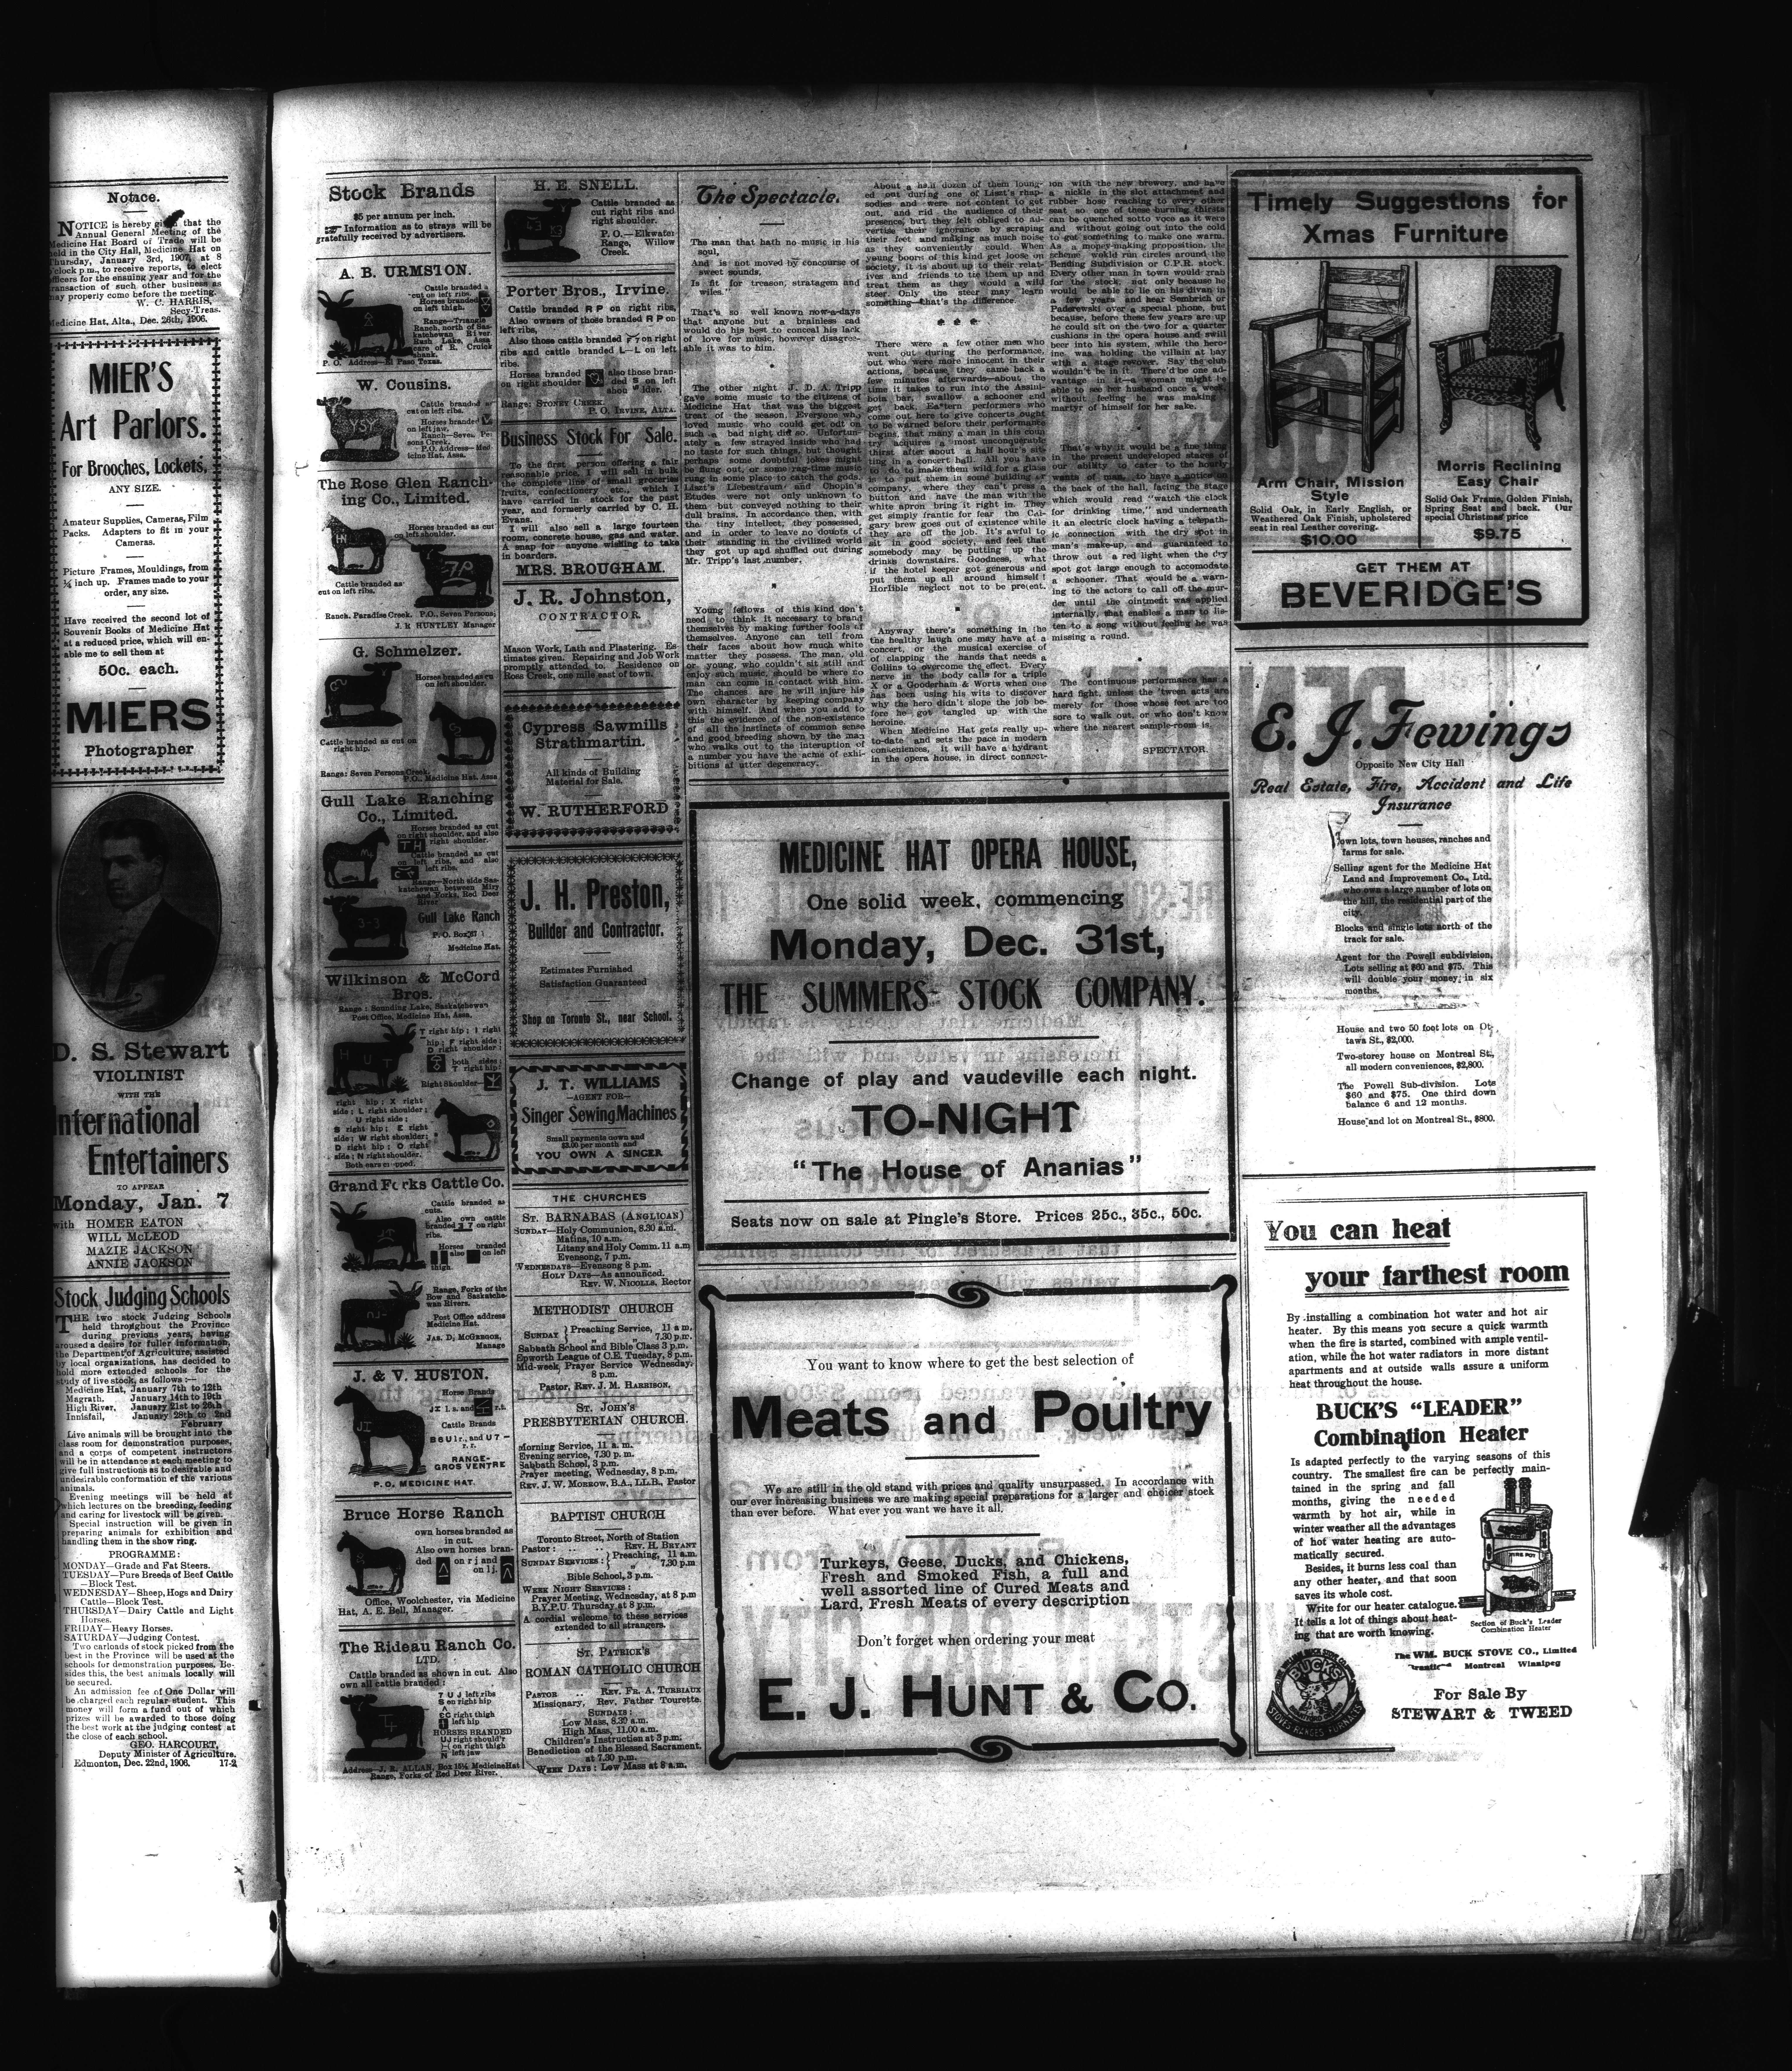 Notice.
NOTICE is hereby given that the
Annual General Meeting of the
Medicine Hat Board of Trade will be
held in the City Hall, Medicine Hat on
Thursday, January 3rd, 1907, at 8
o'clock p.m., to receive reports, to elect
officers for the ensuing year and for the
transaction of such other business as
may properly come before the meeting.
W. C. HARRIS,
Secy-Treas.
Medicine Hat, Alta., Dec. 26th, 1906.
MIER'S
Art Parlors.
For Brooches, Lockets,
ANY SIZE.
Amateur Supplies, Cameras, Film
Packs. Adapters to fit in your
Cameras.
Picture Frames, Mouldings, from
¼ inch up. Frames made to your
order, any size.
Have received the second lot of
Souvenir Books of Medicine Hat
at a reduced price, which will en-
able me to sell them at
50c. each.
MIERS
Photographer
D. S. Stewart
VIOLINIST
WITH THE
International
Entertainers
TO APPEAR
Monday, Jan. 7
with HOMER EATON
WILL McLEOD
MAZIE JACKSON
ANNIE JACKSON
Stock Judging Schools
THE two stock Judging Schools
held throughout the Province
during previous years, having
aroused a desire for fuller information,
the Department of Agriculture, assisted
by local organizations, has decided to
hold more extended schools for the
study of live stock, as follows:—
Medicine Hat, January 7th to 12th
Magrath, January 14th to 19th
High River, January 21st to 26th
Innisfail, January 28th to 2nd
February
Live animals will be brought into the
class room for demonstration purposes,
and a corps of competent instructors
will be in attendance at each meeting to
give full instructions as to desirable and
undesirable conformation of the various
animals.
Evening meetings will be held at
which lectures on the breeding, feeding
and caring for livestock will be given.
Special instruction will be given in
preparing animals for exhibition and
handling them in the show ring.
PROGRAMME:
MONDAY—Grade and Fat Steers.
TUESDAY—Pure Breeds of Beef Cattle
—Block Test.
WEDNESDAY—Sheep, Hogs and Dairy
Cattle—Block Test.
THURSDAY—Dairy Cattle and Light
Horses.
FRIDAY—Heavy Horses.
SATURDAY—Judging Contest.
Two carloads of stock picked from the
best in the Province will be used at the
schools for demonstration purposes. Be-
sides this, the best animals locally will
be secured.
An admission fee of One Dollar will
be charged each regular student. This
money will form a fund out of which
prizes will be awarded to those doing
the best work at the judging contest at
the close of each school.
GEO. HARCOURT,
Deputy Minister of Agriculture.
Edmonton, Dec. 22nd, 1906. 17-2
Stock Brands
$5 per annum per inch.
Information as to strays will be
gratefully received by advertisers.
A. B. URMSTON.
Cattle branded as
cut on left ribs.
Horses branded
on left thigh.
Range—Triangle
Ranch, north of Sas-
katchewan River.
Rush Lake, Assa
care of R. Cruick
shank.
P. O. Address—El Paso Texas.
W. Cousins.
YSY
Cattle branded as
cut on left ribs.
Horses branded
on left jaw.
Ranch—Seven Per-
sons Creek.
P.O. Address—Med-
icine Hat, Assa.
The Rose Glen Ranch-
ing Co., Limited.
Horses branded as cut
on left shoulder.
Cattle branded as
cut on left ribs.
Ranch, Paradise Creek. P.O., Seven Persons,
J. R HUNTLEY Manager
G. Schmelzer.
Horses branded as cut
on left shoulder.
Cattle branded as cut on
right hip.
Range: Seven Persons Creek.
P.O. Medicine Hat, Assa
Gull Lake Ranching
Co., Limited.
Horses branded as cut
on right shoulder, and also
TH right shoulder.
Cattle branded as cut
on left ribs, and also
left ribs.
Range—North side Sas-
katchewan between Miry
and Forks, Red Deer
River.
3-3
Gull Lake Ranch
P. O. Box 87
Medicine Hat.
Wilkinson & McCord
Bros.
Range: Sounding Lake, Saskatchewan
Post Office, Medicine Hat, Assa.
H U T
T right hip; I right
hip; F right side;
D right shoulder;
both sides;
T right hip;
Right Shoulder—
right hip; X right
side; L right shoulder;
U right side;
S right hip; E right
side; W right shoulder;
D right hip; O right
side; N right shoulder.
Both ears cropped.
Grand Forks Cattle Co.
Cattle branded as
cuts.
Also own cattle
branded 3 7 on right
ribs.
Horses branded
also on left
thigh.
Range, Forks of the
Bow and Saskatche-
wan Rivers.
Post Office address
Medicine Hat.
JAS. D. McGREGOR,
Manage
J. & V. HUSTON.
JI
Horse Brands
JI l. s. and r.h.
Cattle Brands
B 6 U l r. and U 7 –
r. r.
RANGE-
GROS VENTRE
P. O. MEDICINE HAT.
Bruce Horse Ranch
own horses branded as
in cut.
Also own horses bran-
ded on r j and
on l j.
Office, Woolchester, via Medicine
Hat, A. E. Bell, Manager.
The Rideau Ranch Co.
LTD.
Cattle branded as shown in cut. Also
own all cattle branded:
7 U J left ribs
S on right hip
right thigh
left hip
HORSES BRANDED
UJ right should'r
on right thigh
left jaw
Address—J. R. ALLAN, Box 15¼ Medicine Hat
Range, Forks of Red Deer River.
H. E. SNELL.
Cattle branded as
cut right ribs and
right shoulder.
P. O.—Elkwater
Range, Willow
Creek.
Porter Bros., Irvine.
Cattle branded R P on right ribs,
Also owners of those branded R P on
left ribs,
Also those cattle branded on right
ribs and cattle branded L—L on left
ribs.
Horses branded also those bran-
on right shoulder ded S on left
shoulder.
Range: STONEY CREEK.
P. O. IRVINE, ALTA.
Business Stock For Sale.
To the first person offering a fair
reasonable price, I will sell in bulk
the complete line of small groceries
fruits, confectionery etc., which I
have carried in stock for the past
year, and formerly carried by C. H.
Evans.
I will also sell a large fourteen
room, concrete house, gas and water.
A snap for anyone wishing to take
in boarders.
MRS. BROUGHAM.
J. R. Johnston,
CONTRACTOR.
Mason Work, Lath and Plastering. Es-
timates given. Repairing and Job Work
promptly attended to. Residence on
Ross Creek, one mile east of town.
Cypress Sawmills
Strathmartin.
All kinds of Building
Material for Sale.
W. RUTHERFORD
J. H. Preston,
Builder and Contractor.
Estimates Furnished
Satisfaction Guaranteed
Shop on Toronto St., near School.
J. T. WILLIAMS
—AGENT FOR—
Singer Sewing Machines
Small payments down and
$3.00 per month and
YOU OWN A SINGER
THE CHURCHES
ST. BARNABAS (ANGLICAN)
SUNDAY—Holy Communion, 8.30 a.m.
Matins, 10 a.m.
Litany and Holy Comm. 11 a.m
Evensong, 7 p.m.
WEDNESDAYS—Evensong 8 p.m.
HOLY DAYS—As announced.
REV. W. NICOLLS, Rector
METHODIST CHURCH
SUNDAY } Preaching Service, 11 a m.
„ „ 7.30 p.m.
Sabbath School and Bible Class 3 p.m.
Epworth League of C.E. Tuesday, 8 p.m.
Mid-week Prayer Service Wednesday.
8 p.m.
Pastor, REV. J. M. HARRISON.
ST. JOHN'S
PRESBYTERIAN CHURCH.
Morning Service, 11 a. m.
Evening service, 7.30 p. m.
Sabbath School, 3 p.m.
Prayer meeting, Wednesday, 8 p.m.
REV. J. W. MORROW, B.A., LL.B., Pastor
BAPTIST CHURCH
Toronto Street, North of Station
Pastor: .. REV. H. BRYANT
SUNDAY SERVICES: { Preaching, 11 a.m.
7.30 p.m
Bible School, 3 p.m.
WEEK NIGHT SERVICES:
Prayer Meeting, Wednesday, at 8 p.m
B.Y.P.U. Thursday at 8 p.m.
A cordial welcome to these services
extended to all strangers.
ST. PATRICK'S
ROMAN CATHOLIC CHURCH
PASTOR .. REV. FR. A. TURBIAUX
Missionary, Rev. Father Tourette.
SUNDAYS:
Low Mass, 8.30 a.m.
High Mass, 11.00 a.m.
Children's Instruction at 3 p.m.
Benediction of the Blessed Sacrament,
at 7.30 p.m.
WEEK DAYS: Low Mass at 8 a.m.
The Spectacle.
The man that hath no music in his
soul,
And is not moved by concourse of
sweet sounds,
Is fit for treason, stratagem and
wiles."
That's so well known now-a-days
that anyone but a brainless cad
would do his best to conceal his lack
of love for music, however disagree-
able it was to him.
The other night J. D. A. Tripp
gave some music to the citizens of
Medicine Hat that was the biggest
treat of the season. Everyone who
loved music who could get out on
such a bad night did so. Unfortun-
ately a few strayed inside who had
no taste for such things, but thought
perhaps some doubtful jokes might
be flung out, or some rag-time music
rung in some place to catch the gods.
Liszt's Liebestraum and Chopin's
Etudes were not only unknown to
them but conveyed nothing to their
dull brains. In accordance then, with
the tiny intellect, they possessed,
and in order to leave no doubts of
their standing in the civilized world
they got up and shuffled out during
Mr. Tripp's last number.
Young fellows of this kind don't
need to think it necessary to brand
themselves by making further fools of
themselves. Anyone can tell from
their faces about how much white
matter they possess. The man, old
or young, who couldn't sit still and
enjoy such music, should be where no
man can come in contact with him.
The chances are he will injure his
own character by keeping company
with himself. And when you add to
this the evidence of the non-existence
of all the instincts of common sense
and good breeding shown by the man
who walks out to the interuption of
a number you have the acme of exhi-
bitions at utter degeneracy.
About a half dozen of them loung-
ed out during one of Liszt's rhap-
sodies and were not content to get
out, and rid the audience of their
presence, but they felt obliged to ad-
vertise their ignorance by scraping
their feet and making as much noise
as they conveniently could. When
young boors of this kind get loose on
society, it is about up to their relat-
ives and friends to tie them up and
treat them as they would a wild
steer. Only the steer may learn
something—that's the difference.
* * *
There were a few other men who
went out during the performance,
but who were more innocent in their
actions, because, they came back a
few minutes afterwards—about the
time it takes to run into the Assini-
boia bar, swallow a schooner and
get back. Eastern performers who
come out here to give concerts ought
to be warned before their performance
begins, that many a man in this coun
try acquires a most unconquerable
thirst after about a half hour's sit-
ting in a concert hall. All you have
to do to make them wild for a glass
is to put them in some building or
company, where they can't press a
button and have the man with the
white apron bring it right in. They
get simply frantic for fear the Cal-
gary brew goes out of existence while
they are off the job. It's awful to
sit in good society, and feel that
somebody may be putting up the
drinks downstairs. Goodness, what
if the hotel keeper got generous and
put them up all around himself!
Horlible neglect not to be present.
Anyway there's something in the
the healthy laugh one may have at a
concert, or the musical exercise of
of clapping the hands that needs a
Collins to overcome the effect. Every
nerve in the body calls for a triple
X or a Gooderham & Worts when one
has been using his wits to discover
why the hero didn't slope the job be-
fore he got tangled up with the
heroine.
When Medicine Hat gets really up-
to-date and sets the pace in modern
conveniences, it will have a hydrant
in the opera house, in direct connect-
ion with the new brewery, and have
a nickle in the slot attachment and
rubber hose reaching to every other
seat so one of these burning thirsts
can be quenched sotto voce as it were
and without going out into the cold
to get something to make one warm.
As a money-making proposition, the
scheme would run circles around the
Bending Subdivision or C.P.R. stock.
Every other man in town would grab
for the stock, not only because he
would be able to lie on his divan in
a few years and hear Sembrich or
Paderewski over a special phone, but
because, before these few years are up
he could sit on the two for a quarter
cushions in the opera house and swill
beer into his system, while the hero-
ine was holding the villain at bay
with a stage revolver. Say the club
wouldn't be in it. There'd be one ad-
vantage in it—a woman might be
able to see her husband once a week,
without feeling he was making a
martyr of himself for her sake.
That's why it would be a fine thing
in the present undeveloped stages of
our ability to cater to the hourly
wants of man, to have a notice on
the back of the hall, facing the stage
which would read "watch the clock
for drinking time," and underneath
it an electric clock having a telepath-
ic connection with the dry spot in
man's make-up, and guaranteed to
throw out a red light when the dry
spot got large enough to accomodate
a schooner. That would be a warn-
ing to the actors to call off the mur-
der until the ointment was applied
internally, that enables a man to lis-
ten to a song without feeling he was
missing a round.
The continuous performance has a
hard fight, unless the 'tween acts are
merely for those whose feet are too
sore to walk out, or who don't know
where the nearest sample-room is.
SPECTATOR.
MEDICINE HAT OPERA HOUSE,
One solid week, commencing
Monday, Dec. 31st,
THE SUMMERS STOCK COMPANY.
Change of play and vaudeville each night.
TO-NIGHT
"The House of Ananias"
Seats now on sale at Pingle's Store. Prices 25c., 35c., 50c.
You want to know where to get the best selection of
Meats and Poultry
We are still in the old stand with prices and quality unsurpassed. In accordance with
our ever increasing business we are making special preparations for a larger and choicer stock
than ever before. What ever you want we have it all.
Turkeys, Geese, Ducks, and Chickens,
Fresh and Smoked Fish, a full and
well assorted line of Cured Meats and
Lard, Fresh Meats of every description
Don't forget when ordering your meat
E. J. HUNT & CO.
Timely Suggestions for
Xmas Furniture
Arm Chair, Mission
Style
Solid Oak, in Early English, or
Weathered Oak Finish, upholstered
seat in real Leather covering.
$10.00
Morris Reclining
Easy Chair
Solid Oak Frame, Golden Finish,
Spring Seat and back. Our
special Christmas price
$9.75
GET THEM AT
BEVERIDGE'S
E. J. Fewings
Opposite New City Hall
Real Estate, Fire, Accident and Life
Insurance
Town lots, town houses, ranches and
farms for sale.
Selling agent for the Medicine Hat
Land and Improvement Co., Ltd.
who own a large number of lots on
the hill, the residential part of the
city.
Blocks and single lots north of the
track for sale.
Agent for the Powell subdivision.
Lots selling at $60 and $75. This
will double your money in six
months.
House and two 50 foot lots on Ot-
tawa St., $2,000.
Two-storey house on Montreal St.,
all modern conveniences, $2,800.
The Powell Sub-division. Lots
$60 and $75. One third down
balance 6 and 12 months.
House and lot on Montreal St., $800.
You can heat
your farthest room
By installing a combination hot water and hot air
heater. By this means you secure a quick warmth
when the fire is started, combined with ample ventil-
ation, while the hot water radiators in more distant
apartments and at outside walls assure a uniform
heat throughout the house.
BUCK'S "LEADER"
Combination Heater
Is adapted perfectly to the varying seasons of this
country. The smallest fire can be perfectly main-
tained in the spring and fall
months, giving the needed
warmth by hot air, while in
winter weather all the advantages
of hot water heating are auto-
matically secured.
Besides, it burns less coal than
any other heater, and that soon
saves its whole cost.
Write for our heater catalogue.
It tells a lot of things about heat-
ing that are worth knowing.
FIRE POT
Section of Buck's Leader
Combination Heater
The WM. BUCK STOVE CO., Limited
Brantford Montreal Winnipeg
BUCK'S
STOVES RANGES FURNACES
For Sale By
STEWART & TWEED